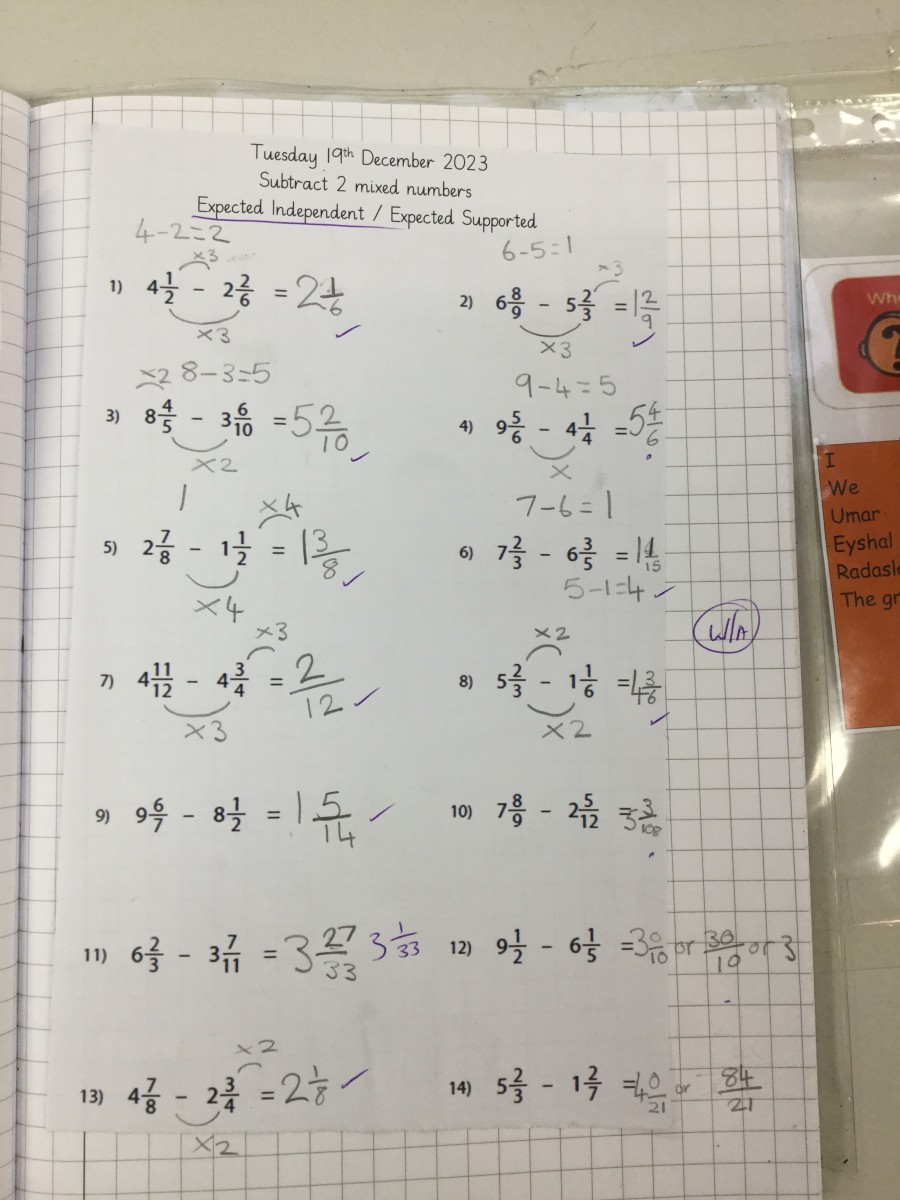 Tuesday 19th December 2023
Subtract 2 mixed numbers
Expected Independent / Expected Supported
4-2=2
×3
1) 4 1/2 - 2 2/6 = 2 1/6
×3
6-5=1
×3
2) 6 8/9 - 5 2/3 = 1 2/9
×3
×2 8-3=5
3) 8 4/5 - 3 6/10 = 5 2/10
×2
9-4=5
4) 9 5/6 - 4 1/4 = 5 4/6
×
1
×4
5) 2 7/8 - 1 1/2 = 1 3/8
×4
7-6=1
6) 7 2/3 - 6 3/5 = 1 1/15
5-1=4
×3
7) 4 11/12 - 4 3/4 = 2/12
×3
×2
8) 5 2/3 - 1 1/6 = 4 3/6
×2
W/A
9) 9 6/7 - 8 1/2 = 1 5/14
10) 7 8/9 - 2 5/12 = 5 3/108
11) 6 2/3 - 3 7/11 = 3 27/33 3 1/33
12) 9 1/2 - 6 1/5 = 3 0/10 or 30/10 or 3
×2
13) 4 7/8 - 2 3/4 = 2 1/8
×2
14) 5 2/3 - 1 2/7 = 4 0/21 or 84/21
Wh
?
I
We
Umar
Eyshal
Radasl
The gr